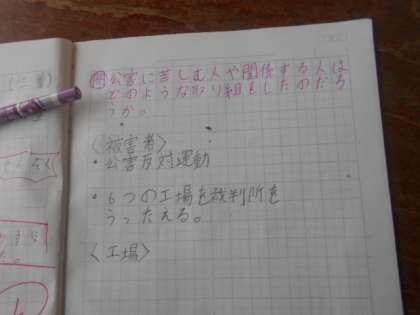 問 公害に苦しむ人や関係する人は
どのような取り組をしたのだろ
うか。
〈被害者〉
・公害反対運動
・6つの工場を裁判所を
うったえる。
〈工場〉